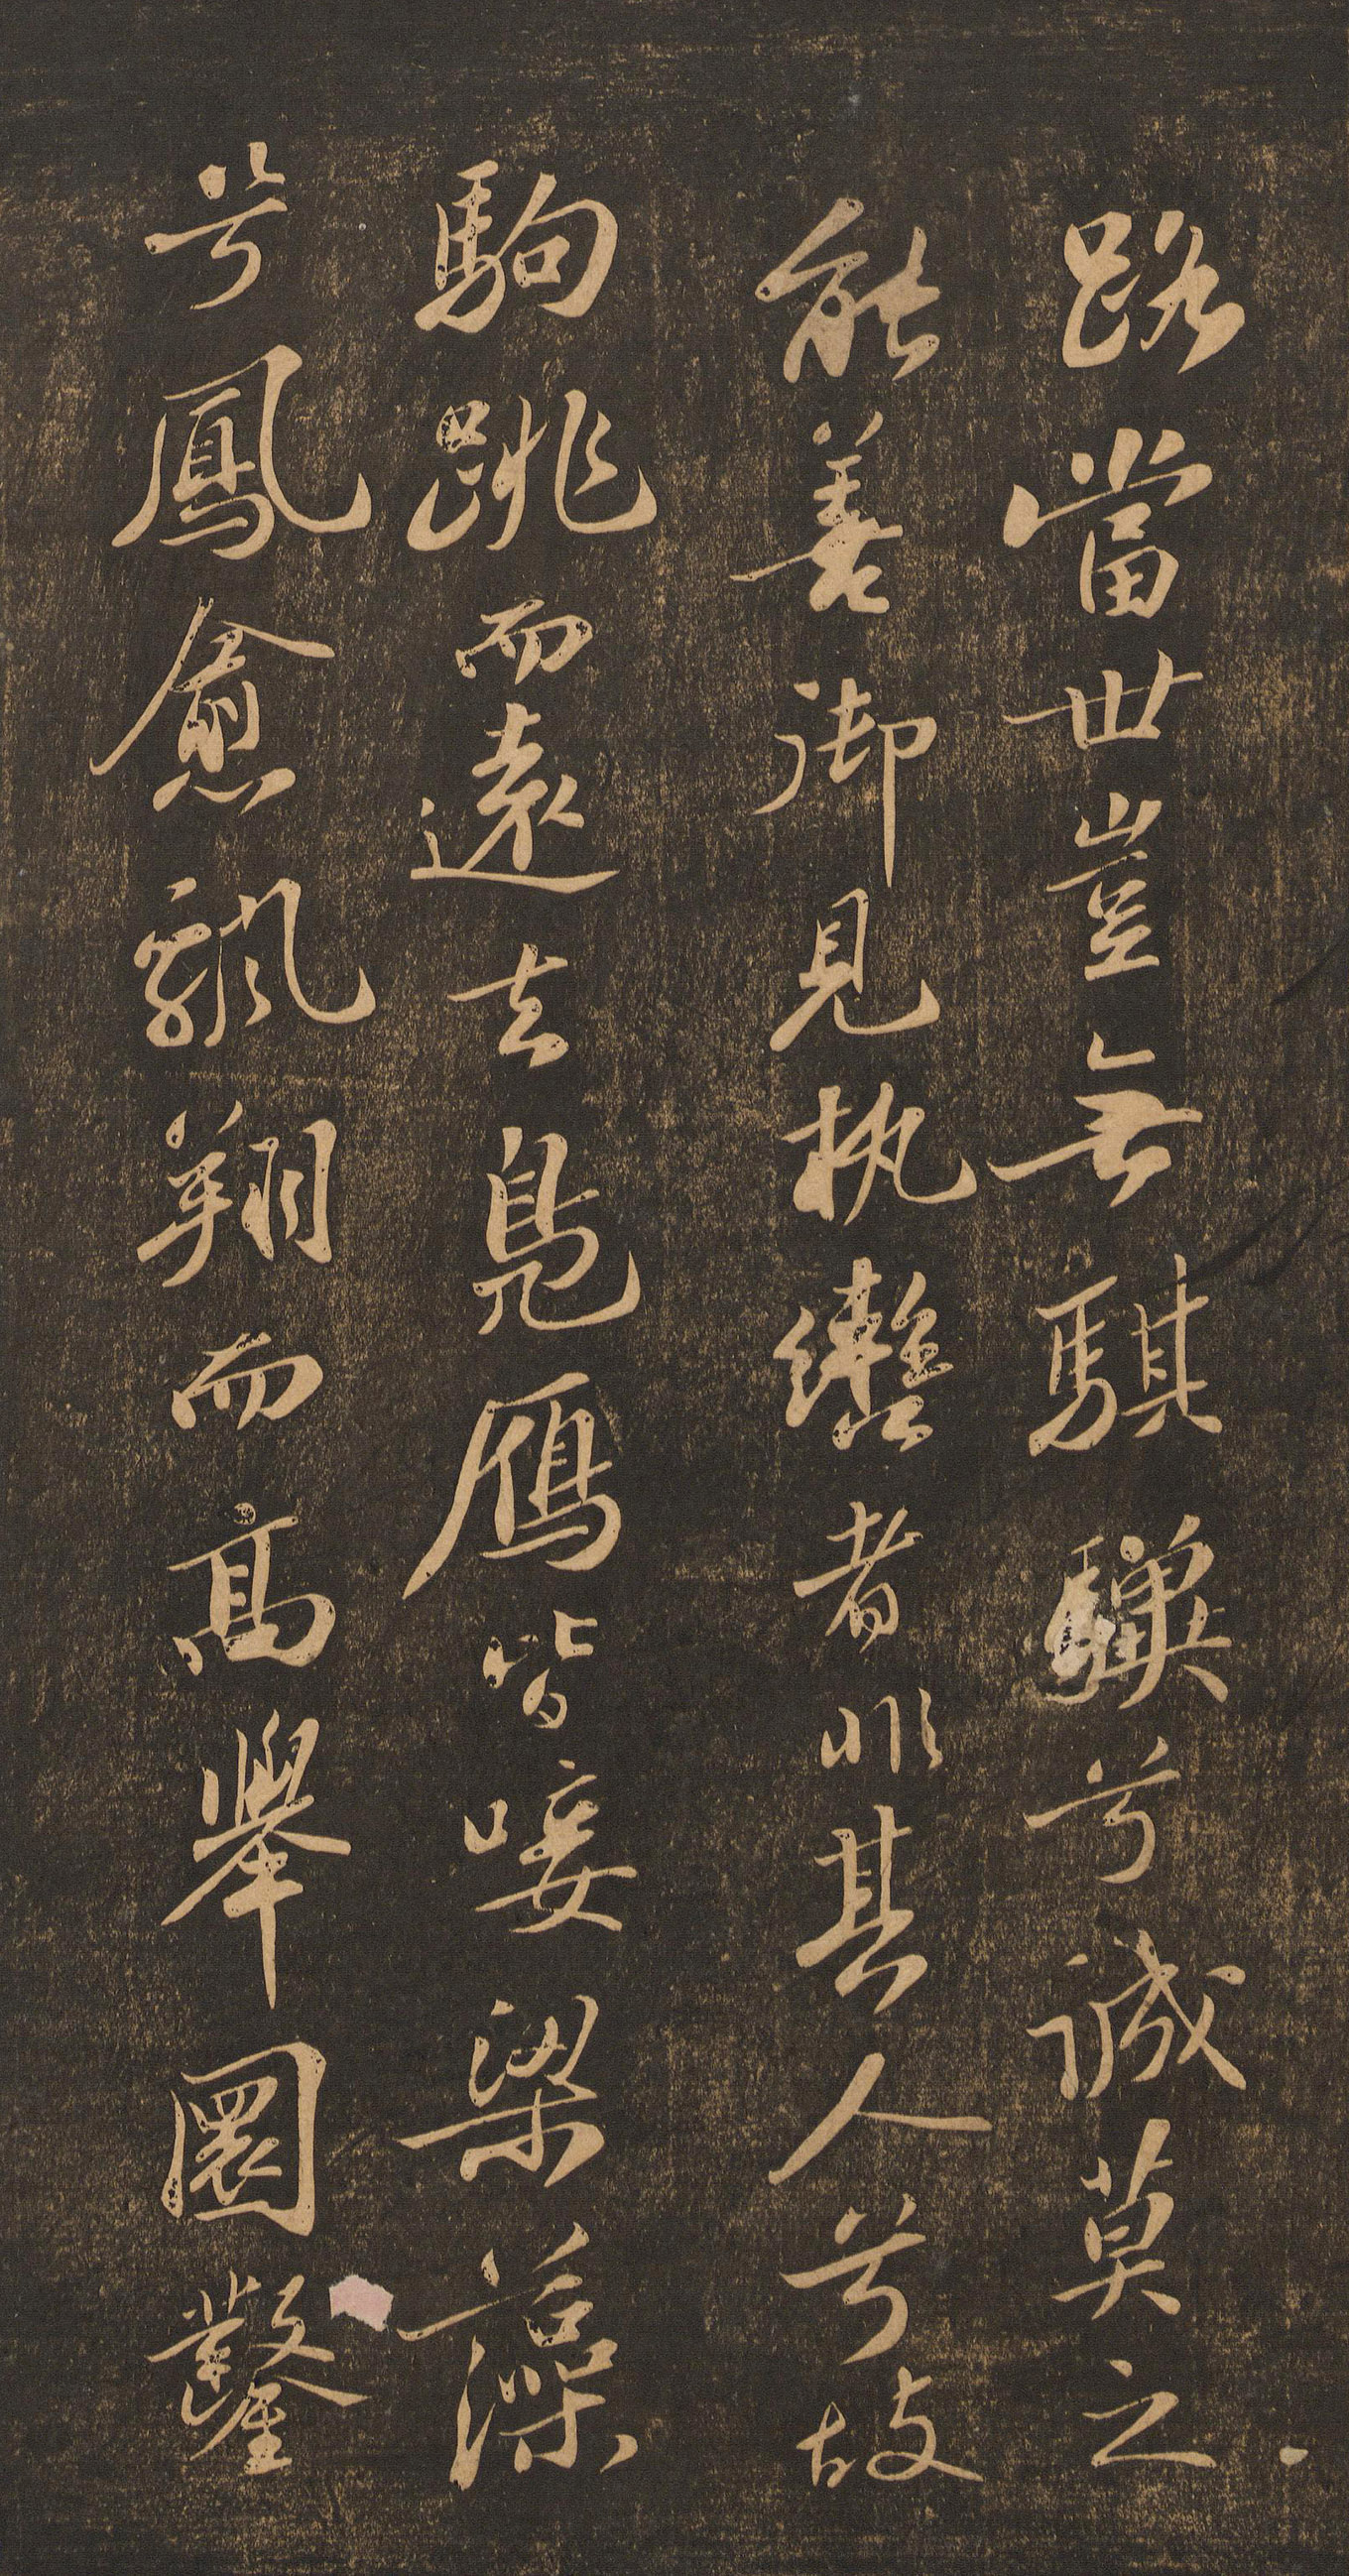 路當世豈無騏驥兮誠莫之
能善御見執轡者非其人兮故
駒跳而遠去鳧鴈皆唼梁藻
兮鳳愈飄翔而高舉圜鑿